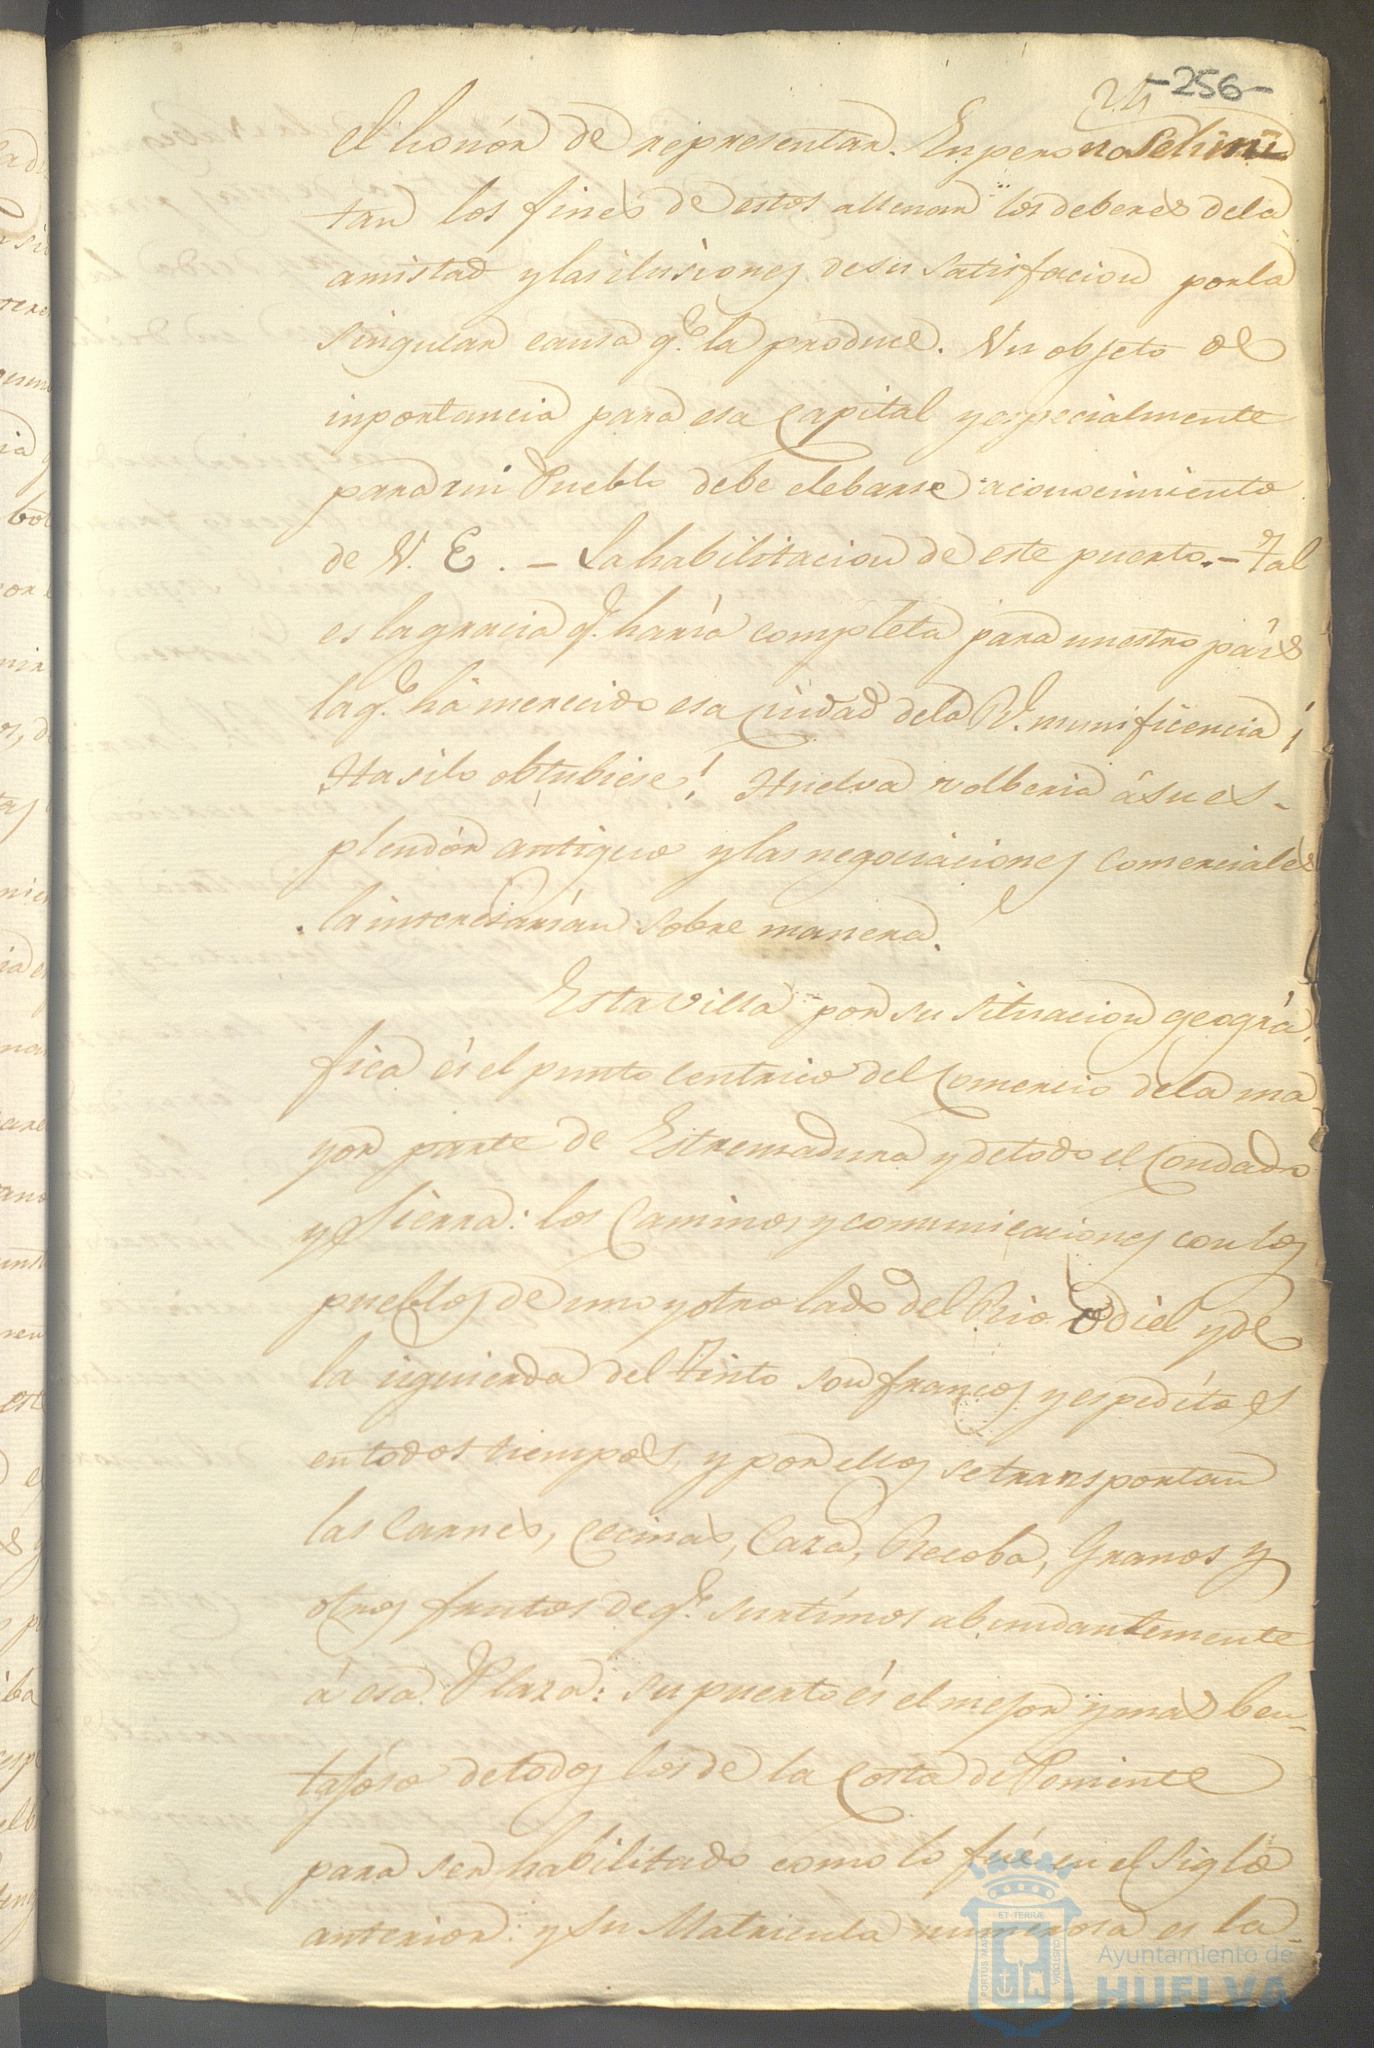 -256-
el honór de representar. Enpero no se limi
tan los fines de estos a llenar los deberes dela
amistad y las ilusiones de su satisfacion por la
singular causa q.e la produce. Un objeto de
inportancia para esa Capital y especialmente
para mi Pueblo debe elebarse a conocimiento
de V. E. – La habilitacion de este puerto. – Tal
es la gracia q.e haría completa para nuestro país
la q.e há merecido esa Ciudad dela Rl. munificencia ¡
Ha si lo obtubiese! Huelva volberia á su es-
plendór antiguo y las negociaciones comerciales
la interesarían sobre manera.
Esta villa por su situacion geográ-
fica és el punto centrico del Comercio dela ma-
yor parte de Estremadura y de todo el Condado
y Sierra: los Caminos y comunicaciones con los
pueblos de uno y otro lado del Rio Odiel y de
la izquierda del Tinto son francos y espeditos
en todos tiempos, y por ellos se transportan
las Carnes, Cecinas, Caza, Recoba, Granos y
otros frutos de q.e surtímos abundantemente
á esa Plaza: su puerto és el mejor y mas ben-
tajóso de todos los de la Costa de Poniente
para ser habilitado como lo fué en el Siglo
anterior: y su Matricula numerosa es la
PORTUS MARIS ET TERRÆ CUSTODIA
Ayuntamiento de
HUELVA